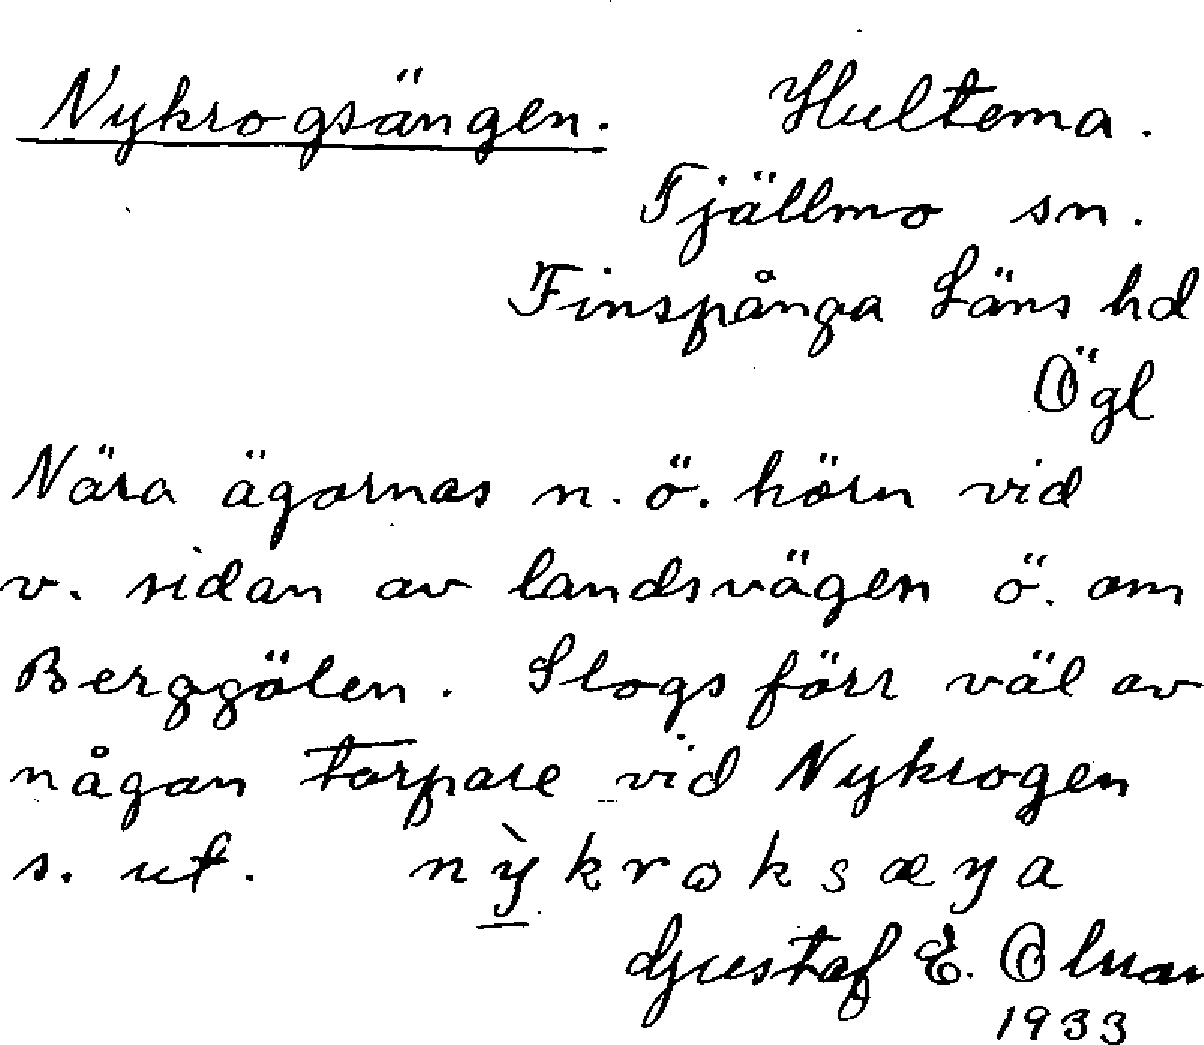 Nykrogsängen. Hultema.
Tjällmo sn.
Finspånga Läns hd
Ögl
Nära ägornas n. ö. hörn vid
v. sidan av landsvägen ö. om
Berggölen. Slogs förr väl av
någon torpare vid Nykrogen
s. ut. nỳkroksæŋa
Gustaf E.
1933